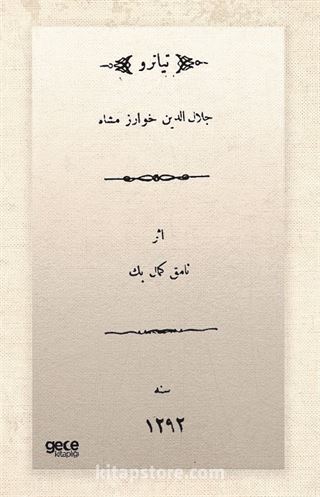 تیاترو
جلال الدین خوارزمشاه
اثر
نامق کمال بك
سنه
١٢٩٢
gece
kitaplığı
kitapstore.com